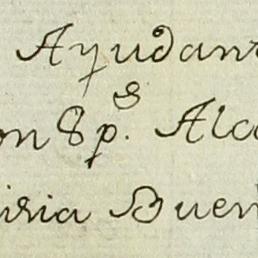 Ayudan
on Sp.s Alca
iria Buen